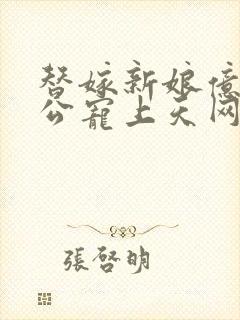 替嫁新娘億
公寵上天网
張啓明